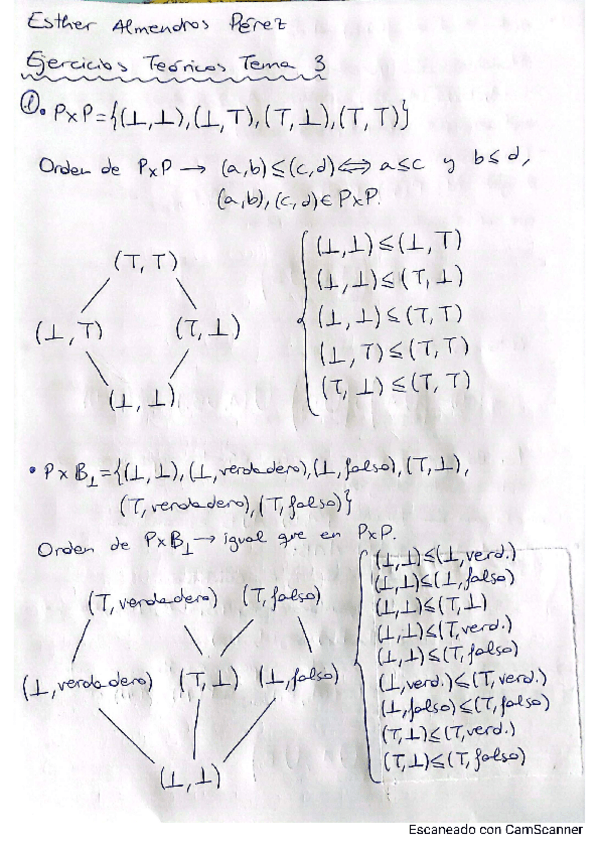 Esther Almendros Pérez
Ejercicios Teóricos Tema 3
①. P×P={(⊥,⊥),(⊥,T),(T,⊥),(T,T)}
Orden de P×P → (a,b)≤(c,d)⟺ a≤c y b≤d,
(a,b),(c,d)∈P×P.
(T,T)
(⊥,T) (T,⊥)
(⊥,⊥)
(⊥,⊥)≤(⊥,T)
(⊥,⊥)≤(T,⊥)
(⊥,⊥)≤(T,T)
(⊥,T)≤(T,T)
(T,⊥)≤(T,T)
• P×B⊥={(⊥,⊥),(⊥,verdadero),(⊥,falso),(T,⊥),
(T,verdadero),(T,falso)}
Orden de P×B⊥→ igual que en P×P.
(T,verdadero) (T,falso)
(⊥,verdadero) (T,⊥) (⊥,falso)
(⊥,⊥)
(⊥,⊥)≤(⊥,verd.)
(⊥,⊥)≤(⊥,falso)
(⊥,⊥)≤(T,⊥)
(⊥,⊥)≤(T,verd.)
(⊥,⊥)≤(T,falso)
(⊥,verd.)≤(T,verd.)
(⊥,falso)≤(T,falso)
(T,⊥)≤(T,verd.)
(T,⊥)≤(T,falso)
Escaneado con CamScanner